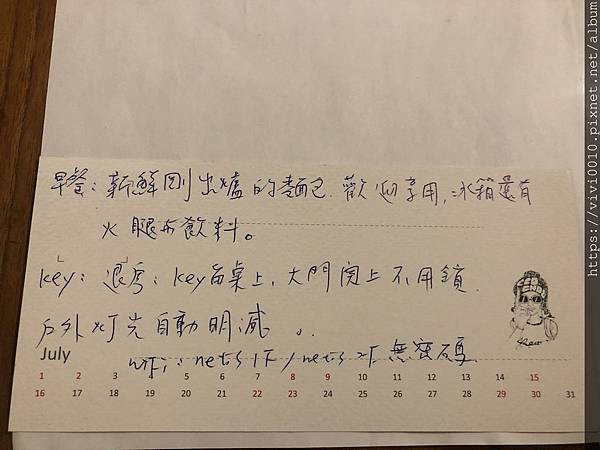 早餐：新鮮剛出爐的麵包．歡迎享用，冰箱還有
火腿和飲料。
key：退房：key留桌上，大門関上不用鎖．
戶外灯光自動明滅。
WIFI：nets 1F / nets 2F 無密碼
July
1 2 3 4 5 6 7 8 9 10 11 12 13 14 15
16 17 18 19 20 21 22 23 24 25 26 27 28 29 30 31
https://vivi0010.pixnet.net/album